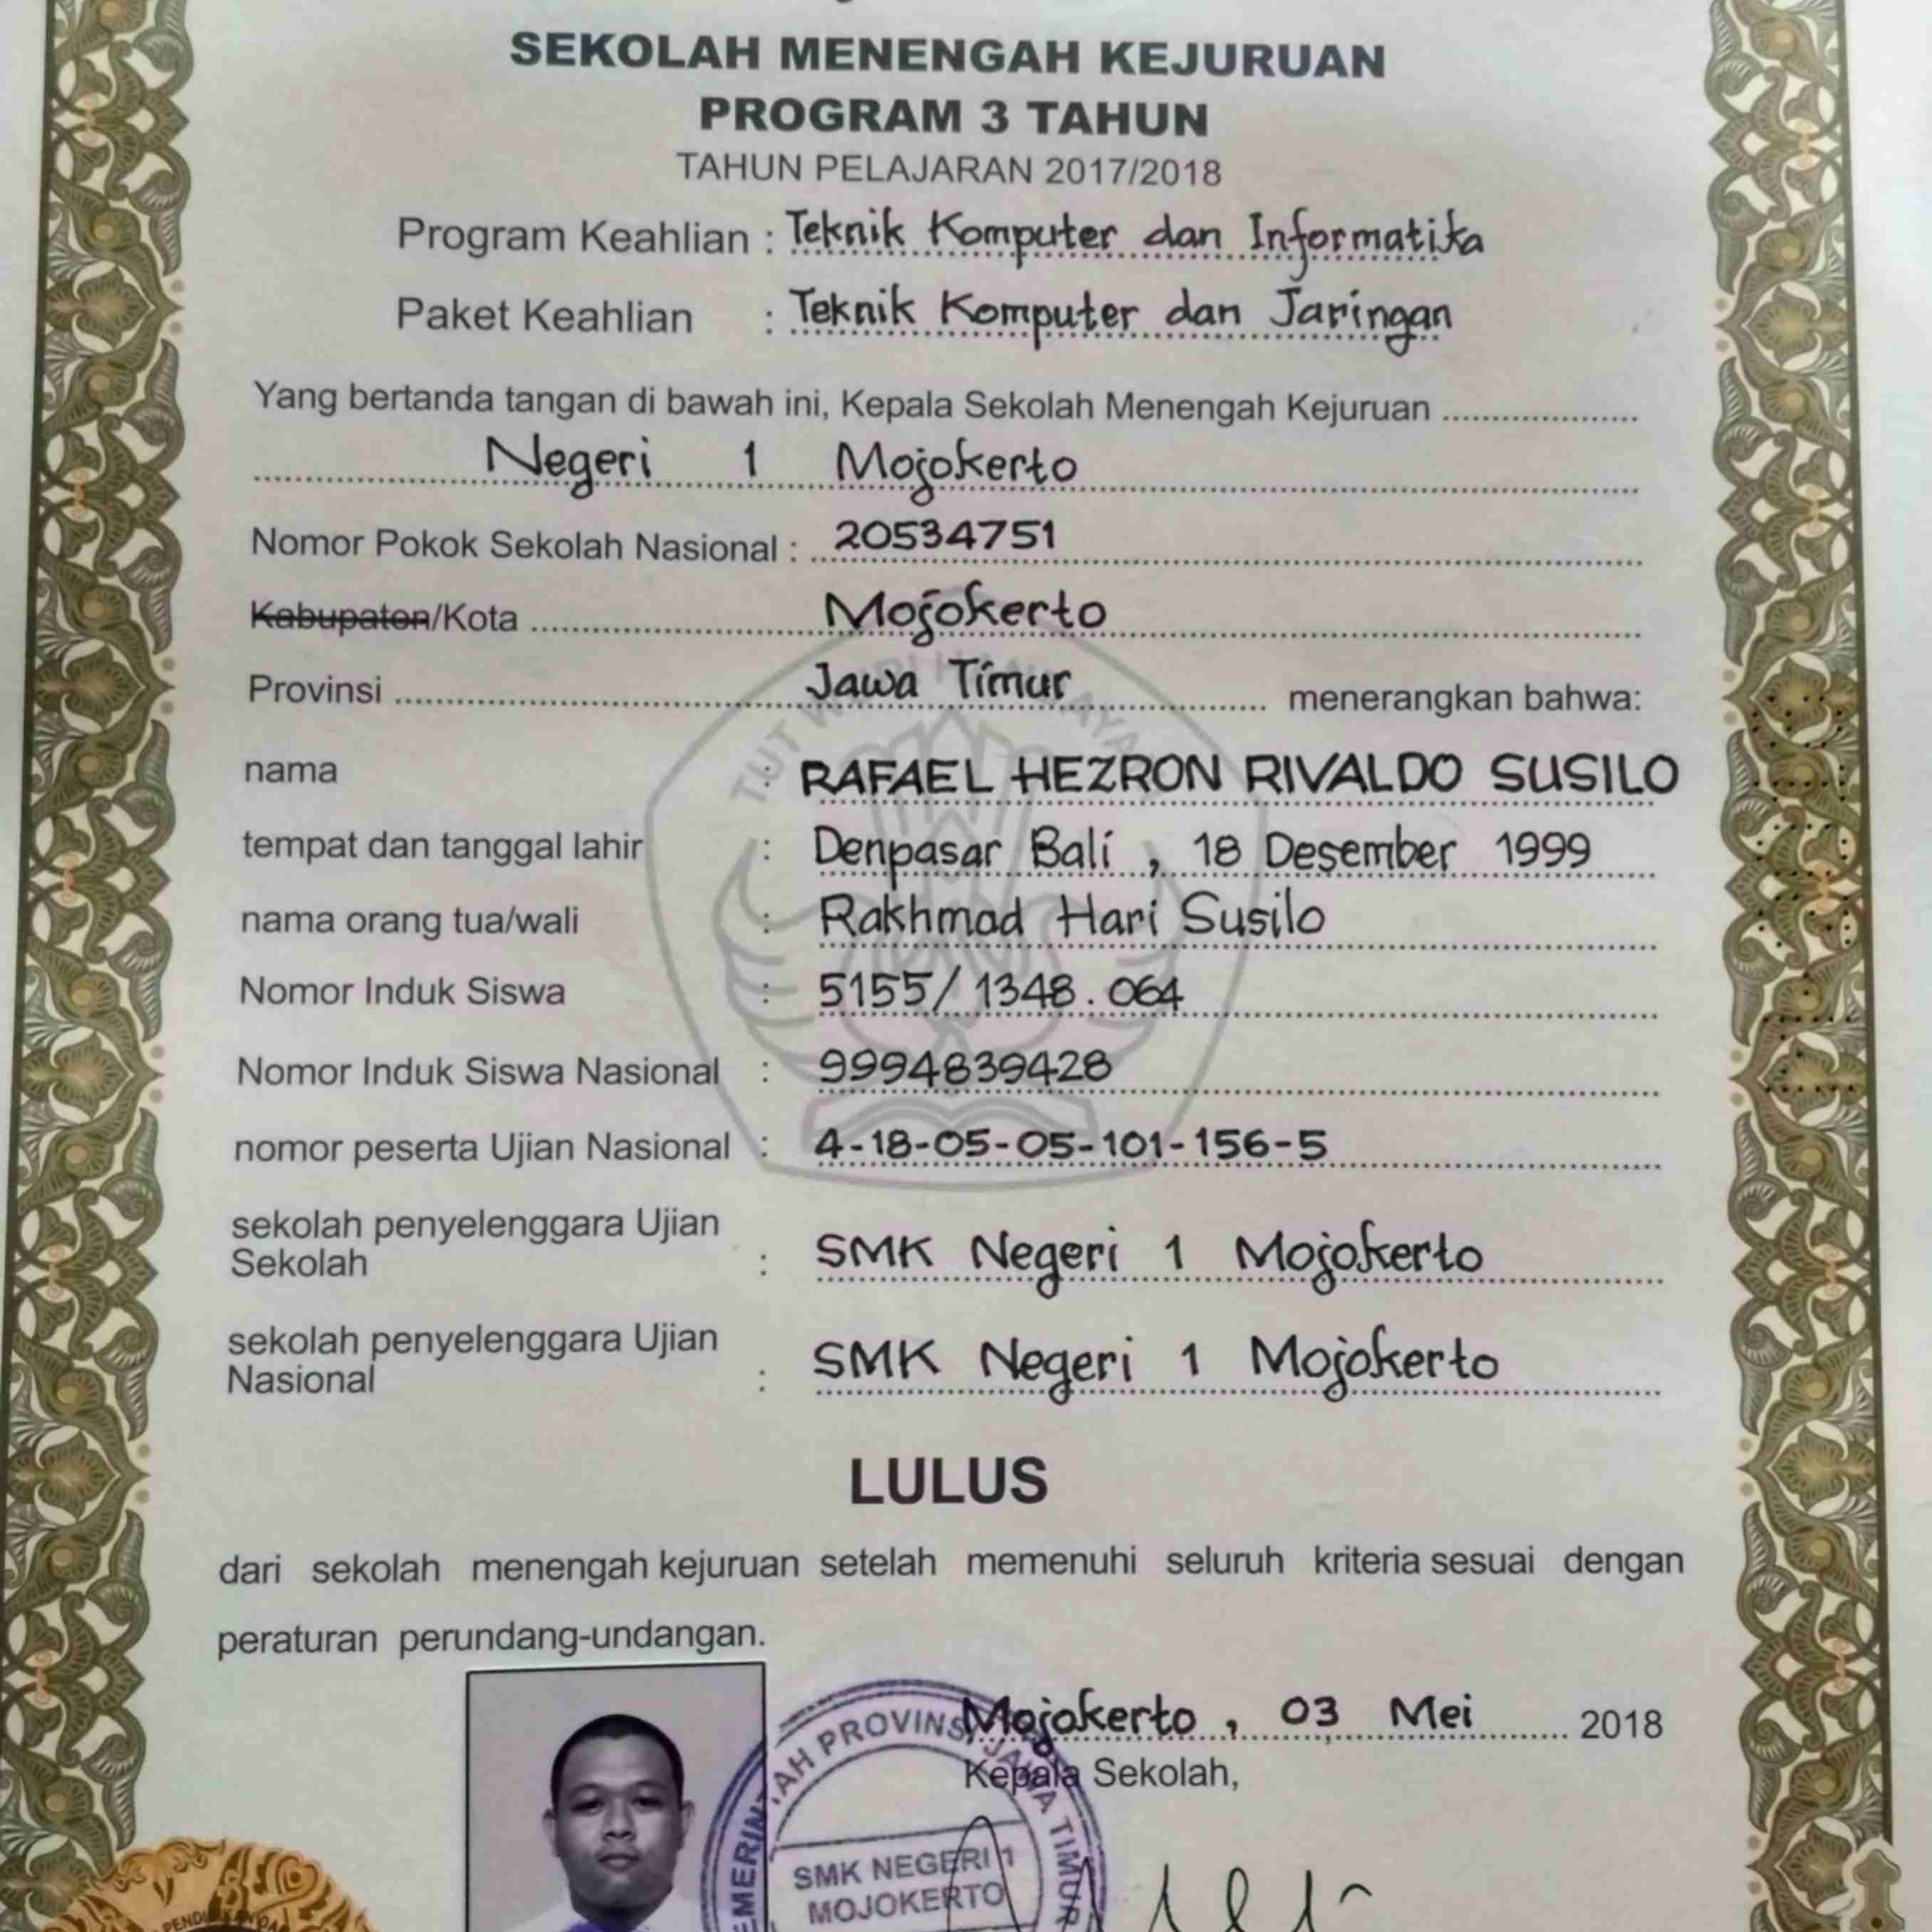 SEKOLAH MENENGAH KEJURUAN
PROGRAM 3 TAHUN
TAHUN PELAJARAN 2017/2018
Program Keahlian : Teknik Komputer dan Informatika
Paket Keahlian : Teknik Komputer dan Jaringan
Yang bertanda tangan di bawah ini, Kepala Sekolah Menengah Kejuruan
Negeri 1 Mojokerto
Nomor Pokok Sekolah Nasional : 20534751
Kabupaten/Kota Mojokerto
Provinsi Jawa Timur menerangkan bahwa:
nama : RAFAEL HEZRON RIVALDO SUSILO
tempat dan tanggal lahir : Denpasar Bali , 18 Desember 1999
nama orang tua/wali : Rakhmad Hari Susilo
Nomor Induk Siswa : 5155/1348.064
Nomor Induk Siswa Nasional : 9994839428
nomor peserta Ujian Nasional : 4-18-05-05-101-156-5
sekolah penyelenggara Ujian
Sekolah : SMK Negeri 1 Mojokerto
sekolah penyelenggara Ujian
Nasional : SMK Negeri 1 Mojokerto
LULUS
dari sekolah menengah kejuruan setelah memenuhi seluruh kriteria sesuai dengan
peraturan perundang-undangan.
Mojokerto , 03 Mei 2018
Kepala Sekolah,
PROVINSI JAWA TIMUR
SMK NEGERI 1
MOJOKERTO